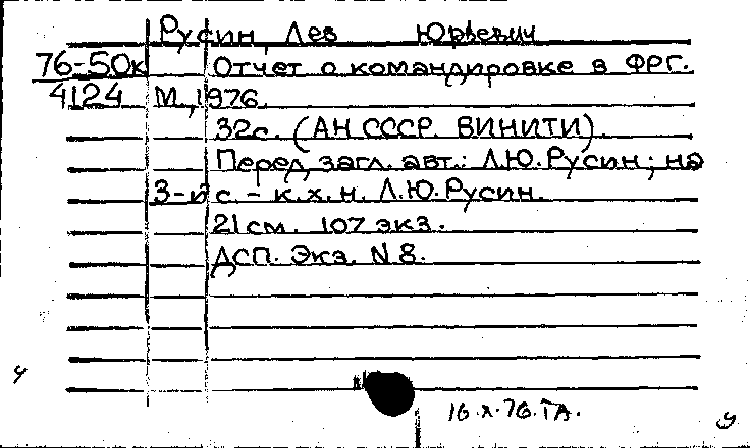 Русин, Лев Юрьевич
76-50к Отчет о командировке в ФРГ.
4124 М., 1976.
32с. (АН СССР. ВИНИТИ).
Перед загл. авт.: Л.Ю. Русин; на
3-й с. - к.х.н. Л.Ю. Русин.
21 см. 107 экз.
ДСП. Экз. N 8.
у
16.X.76. ГА.
у